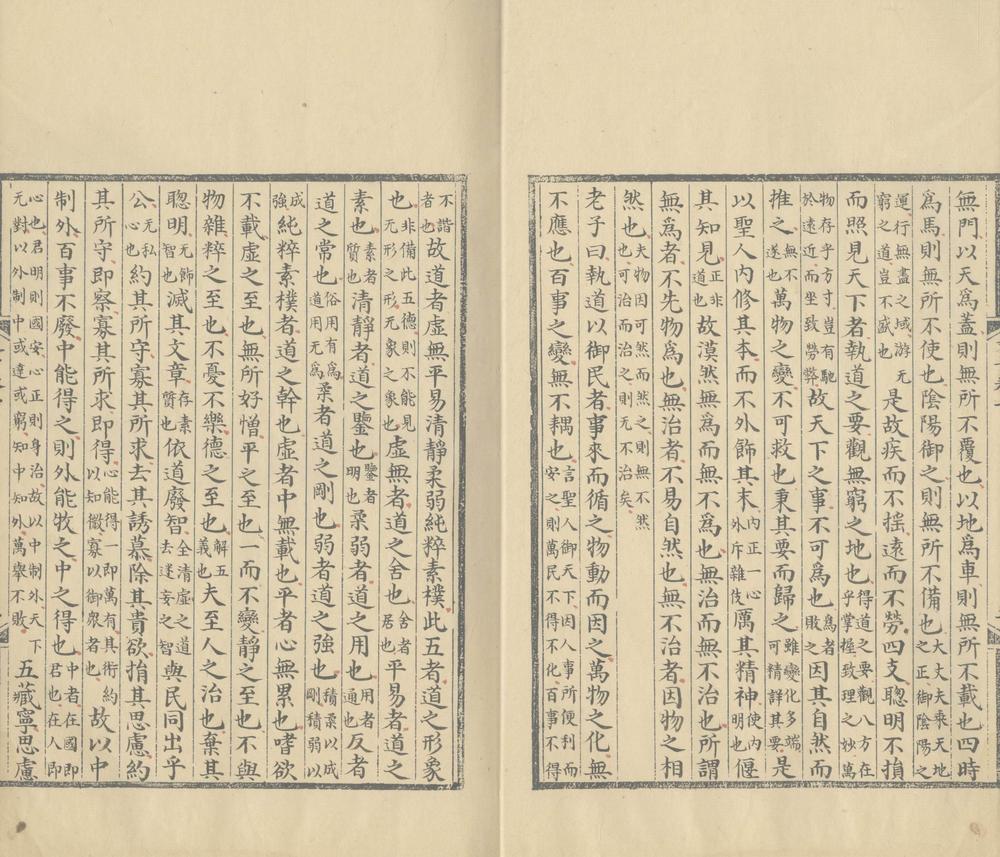 無門以天爲蓋則無所不覆也以地爲車則無所不載也四時
爲馬則無所不使也陰陽御之則無所不備也大丈夫乘天地之正御陰陽之
運行無盡之域游无窮之道豈不盛也是故疾而不搖遠而不勞四支聰明不損
而照見天下者執道之要觀無窮之地也得道之要觀八方在乎掌握致理之妙萬
物存乎方寸豈有馳於遠近而坐致勞弊故天下之事不可爲也爲者敗之因其自然而
推之無不遂也萬物之變不可救也秉其要而歸之雖變化多端可精詳其要是
以聖人内修其本而不外飾其末内正一心外斥雜伎厲其精神使内明也偃
其知見正非道也故漠然無爲而無不爲也無治而無不治也所謂
無爲者不先物爲也無治者不易自然也無不治者因物之相
然也夫物因可然而然之則無不然也可治而治之則无不治矣
老子曰執道以御民者事來而循之物動而因之萬物之化無
不應也百事之變無不耦也言聖人御天下因人事所便利而安之則萬民不得不化百事不得
不諧者也故道者虛無平易清靜柔弱純粹素樸此五者道之形象
也非備此五德則不能見无形之形无象之象也虛無者道之舍也舍者居也平易者道之
素也素者質也清靜者道之鑒也鑒者明也柔弱者道之用也用者通也反者
道之常也俗用有爲道用无爲柔者道之剛也弱者道之強也積柔以成剛積弱以
成強純粹素樸者道之幹也虛者中無載也平者心無累也嗜欲
不載虛之至也無所好憎平之至也一而不變靜之至也不與
物雜粹之至也不憂不樂德之至也解五義也夫至人之治也棄其
聰明无飾智也滅其文章存素質也依道廢智全清虛之道去迷妄之智與民同出乎
公无私心也約其所守寡其所求去其誘慕除其貴欲捐其思慮約
其所守即察寡其所求即得心能得一即萬有其術約以知微寡以御衆者也故以中
制外百事不廢中能得之則外能牧之中之得也中者在國即君也在人即
心也君明則國安心正則身治故以中制外天下无對以外制中或達或窮知中知外萬舉不敗五藏寧思慮